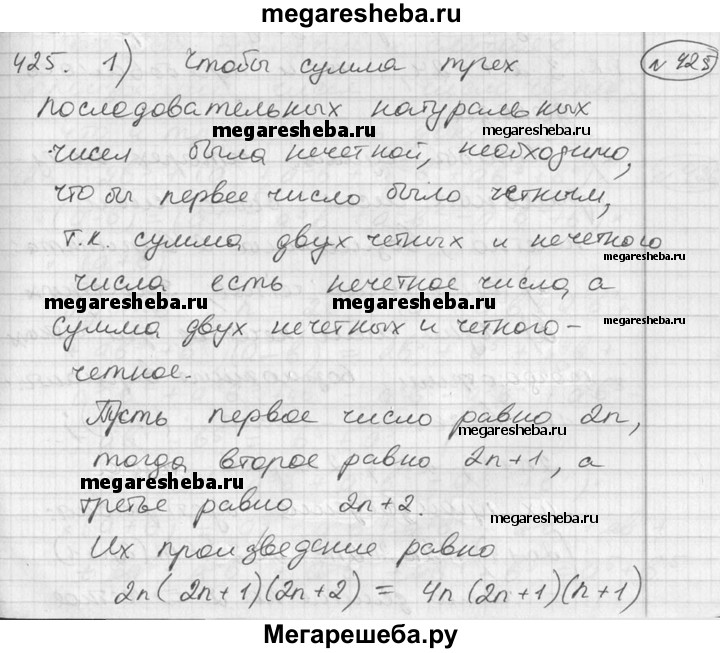 megaresheba.ru
425. 1) Чтобы сумма трех
№ 425
последовательных натуральных
megaresheba.ru megaresheba.ru
чисел была нечетной, необходимо,
что бы первое число было четным,
т.к. сумма двух четных и нечетного
megaresheba.ru
числа есть нечетное число, а
megaresheba.ru megaresheba.ru
сумма двух нечетных и четного –
megaresheba.ru
четное.
Пусть первое число равно 2n,
megaresheba.ru
тогда второе равно 2n+1, а
megaresheba.ru
третье равно 2n+2.
megaresheba.ru
Их произведение равно
2n(2n+1)(2n+2) = 4n(2n+1)(n+1)
Мегарешеба.ру